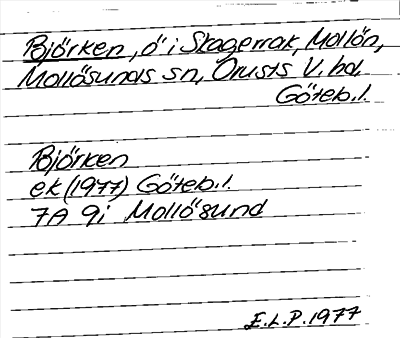 Björken, ö i Skagerrak, Mollön,
Mollösunds sn, Orusts V. hd,
Göteb.l.
Björken
ek (1977) Göteb.l.
7A 9i Mollösund
E.L.P. 1977